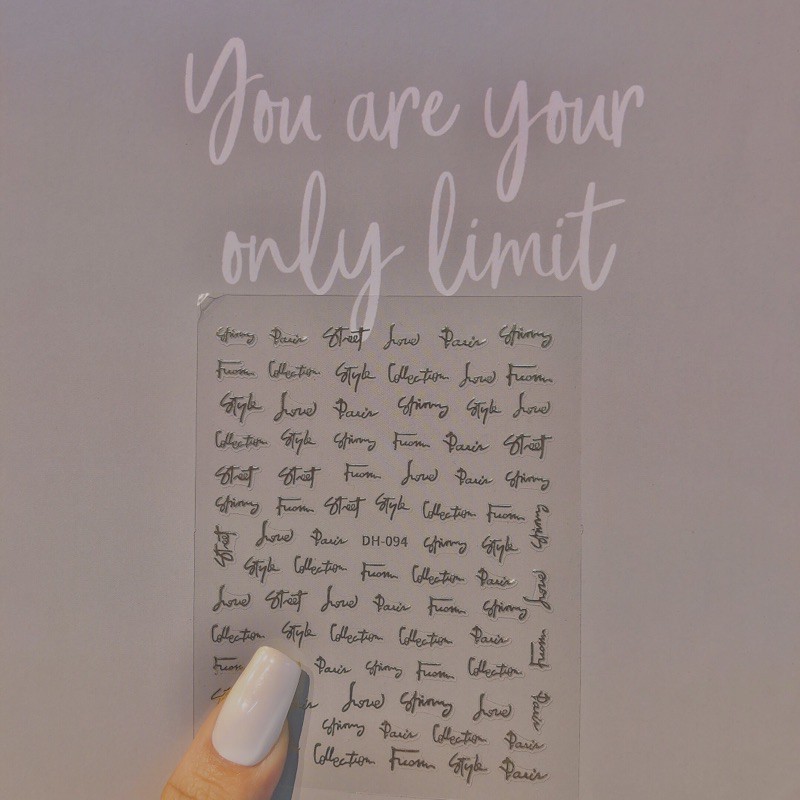 You are your
only limit
Shinny Paris Street Love Paris Shinny
Fuom Collection Style Collection Love Fuom
Style Love Paris Shinny Style Love
Collection Style Shinny Fuom Paris Street
Street Street Fuom Love Paris Shinny
Shinny Fuom Street Style Collection Fuom Shinny
Street Love Paris DH-094 Shinny Style
Style Collection Fuom Collection Paris Love
Love Street Love Paris Fuom Shinny
Collection Style Collection Collection Paris Fuom
Fuom Paris Shinny Fuom Collection
Love Shinny Love Paris
Shinny Paris Collection Paris
Collection Fuom Style Paris